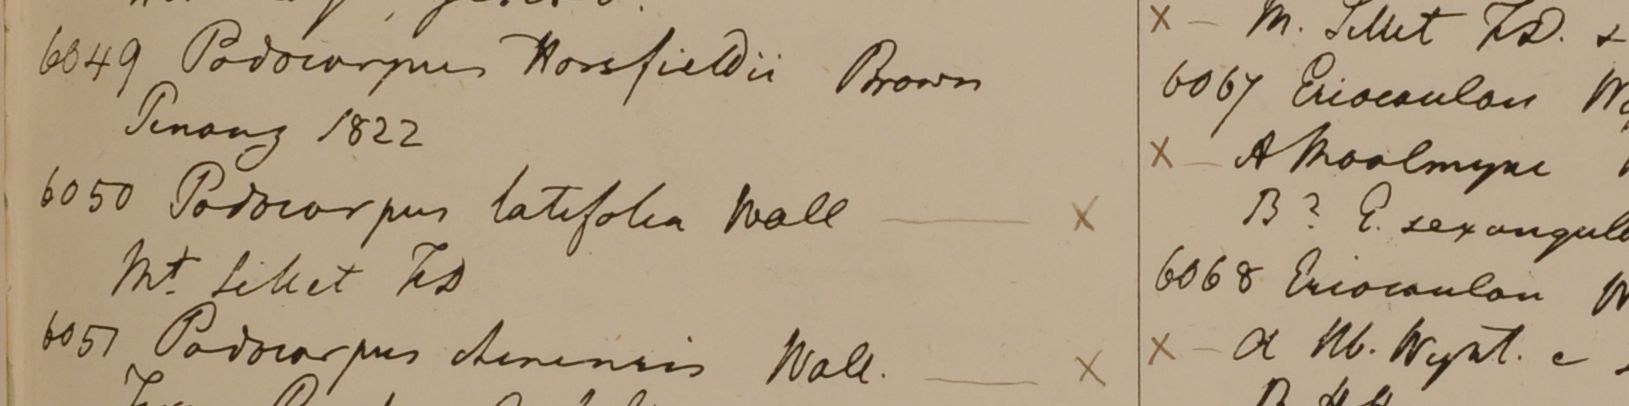 6049 Podocarpus Horsfieldii Brown
Penang 1822
6050 Podocarpus latifolia Wall — x
Mt. Sillet FD
6051 Podocarpus chinensis Wall. — x
x – M. Sillet FD. &
6067 Eriocaulon
x – A Moolmyne
B? E. sexangul
6068 Eriocaulon W
x – a Hb. Wight. c